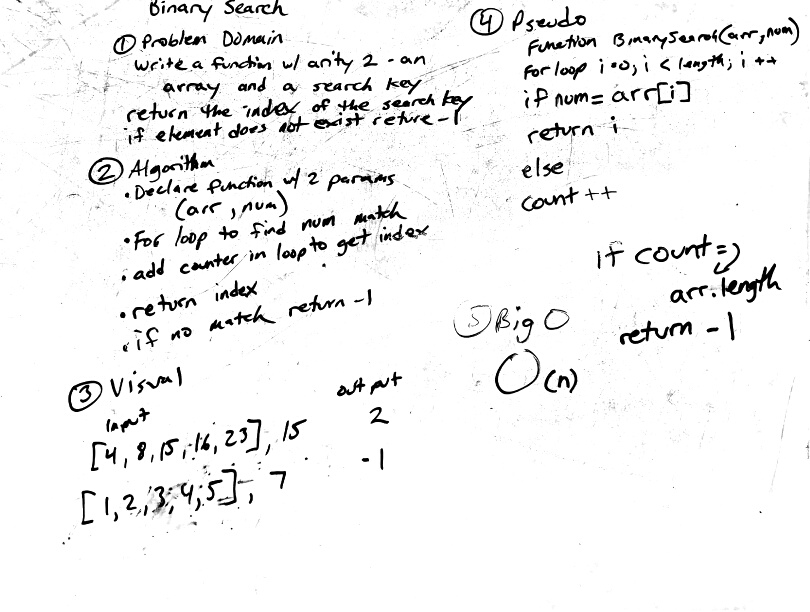 Binary Search
① Problem Domain
Write a function w/ arity 2 - an
array and a search key
return the index of the search key
if element does not exist return -1
② Algorithm
• Declare function w/ 2 params
(arr, num)
• For loop to find num match
• add counter in loop to get index
• return index
• if no match return -1
③ Visual
input output
[4, 8, 15, 16, 23], 15 2
[1, 2, 3, 4, 5], 7 -1
④ Pseudo
Function BinarySearch(arr, num)
For loop i=0; i < length; i ++
if num = arr[i]
return i
else
count ++
if count =
arr.length
return -1
⑤ Big O
O(n)